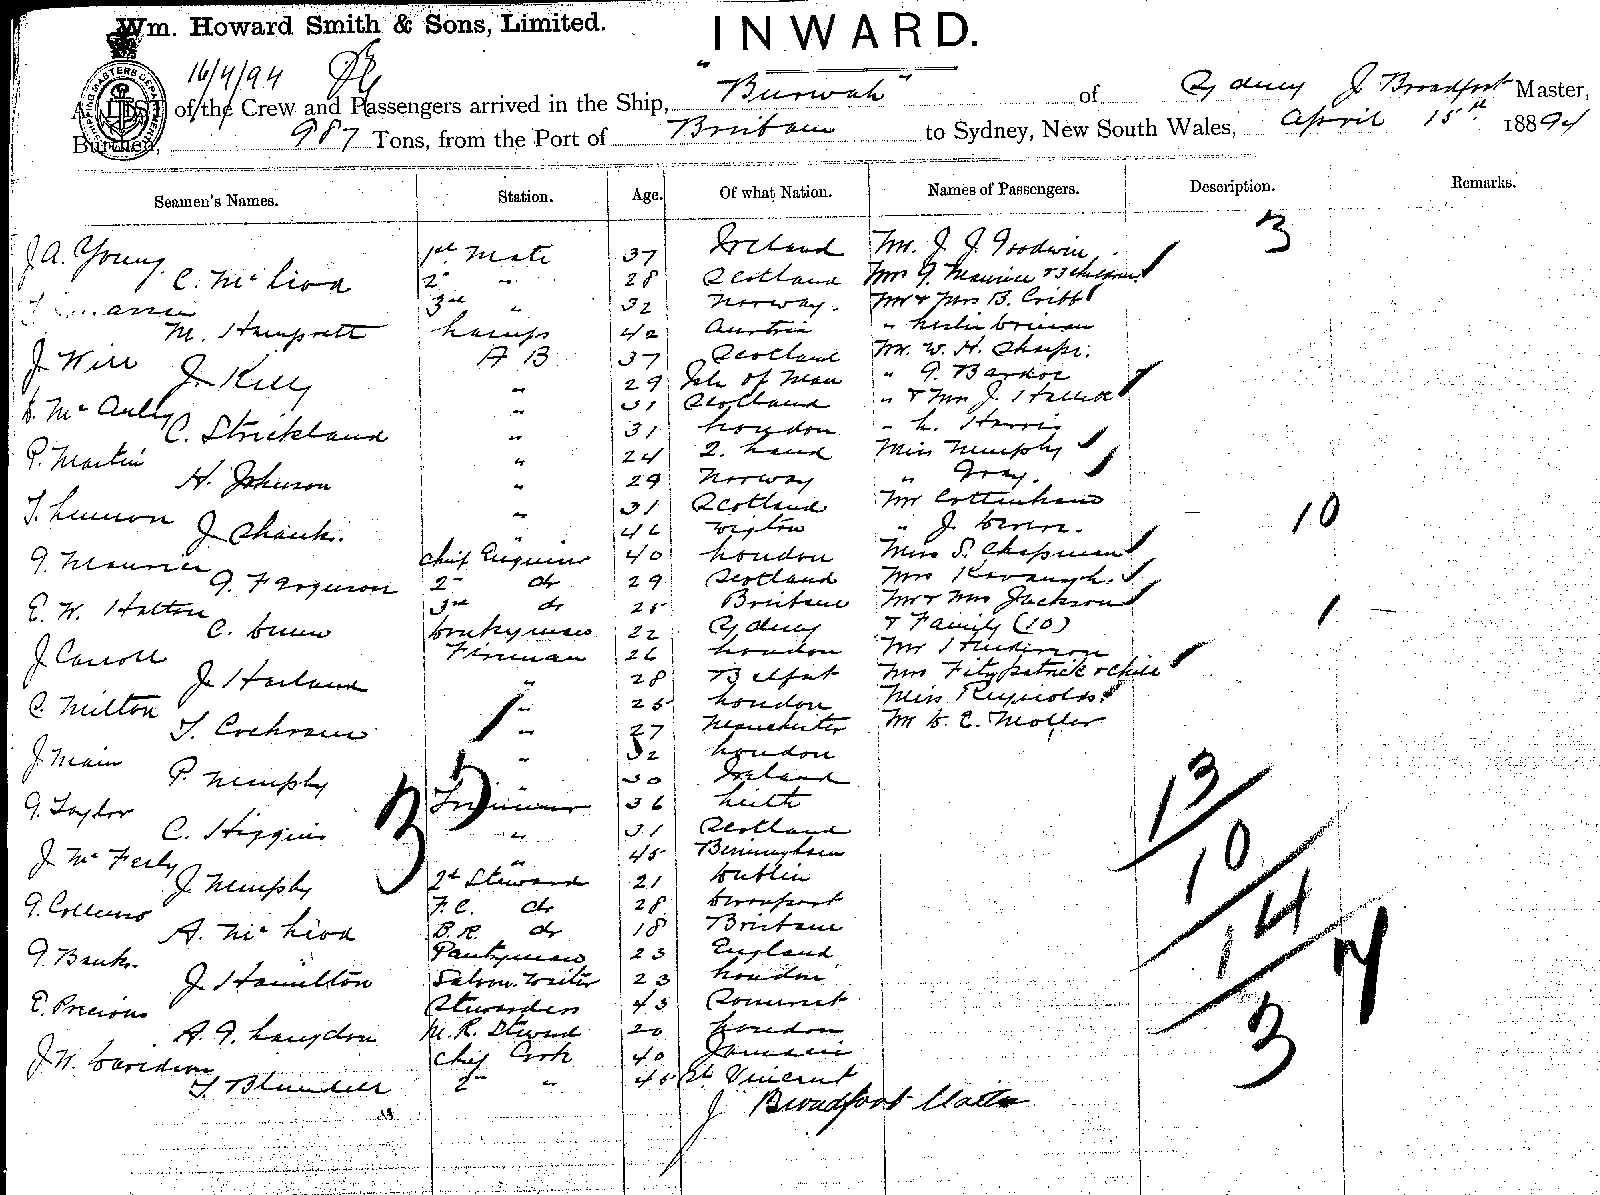 Wm. Howard Smith & Sons, Limited.
INWARD.
16/4/94
A LIST of the Crew and Passengers arrived in the Ship, "Burwah" of Sydney J Broadfoot Master,
Burthen, 987 Tons, from the Port of Brisbane to Sydney, New South Wales, April 15th 1894
Seamen's Names. Station. Age. Of what Nation. Names of Passengers. Description. Remarks.
J A. Young 1st Mate 37 Ireland Mr. J. J. Goodwin 3
C. McLeod 2nd " 28 Scotland Mrs G. Maurice & 3 children
3rd " 32 Norway. Mr & Mrs B. Cribb
M. Lamps 42 Austria "
J Will A B 37 Scotland Mr. W. H. Sharp.
J Kelly " 29 Isle of Man " G. Barker
D. McAuley " 31 Scotland " & Mrs J.
C. Strickland " 31 London " L. Harris
P. Martin " 24 Z. land Miss Murphy
H. Johnson " 29 Norway " Gray.
T. Lennon " 31 Scotland Mr Cottenham
J Shanks. " 46 Wigton " J.
G. Maurice Chief Engineer 40 London Miss S. Chapman
G. Ferguson 2nd do 29 Scotland Mrs Kavanagh.
E. W. Halton 3rd do 25 Brisbane Mr & Mrs Jackson
C. Dunn Donkeyman 22 Sydney & Family (10)
J Carroll Fireman 26 London Mr Henderson
J Harland " 28 Belfast Mrs Fitzpatrick & child
C. Milton " 25 London Miss Reynolds
T. Cochrane " 27 Manchester Mr D. C. Moller
J Main " 32 London
P. Murphy " 30 Ireland
G. Taylor Trimmer 36 Leith
C. Higgins " 31 Scotland
J McFerly " 45 Birmingham
J. Murphy 2nd Steward 21 Dublin
G. Collins F.C. do 28 Devonport
A. McLeod B.R. do 18 Brisbane
G. Banks Pantryman 23 England
J Hamilton Saloon Waiter 23 London
E. Precious Stewardess 43 Somerset
A. G. Langdon M. R. Steward 20 London
J W. Davidson Chief Cook 40 Jamaica
T Blundell 2nd " 45 St. Vincent
J Broadfoot Master
10
1
13
10
14
3